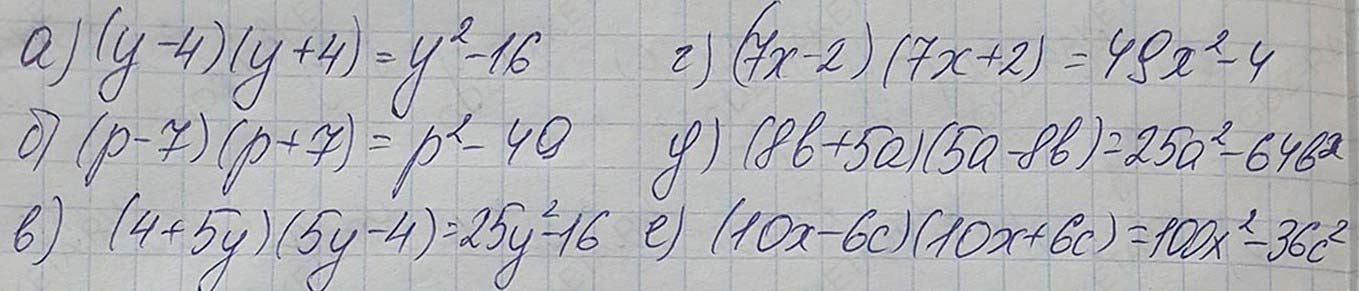 а) (y-4)(y+4)=y²-16
г) (7x-2)(7x+2)=49x²-4
б) (p-7)(p+7)=p²-49
д) (8b+5a)(5a-8b)=25a²-64b²
в) (4+5y)(5y-4)=25y²-16
е) (10x-6c)(10x+6c)=100x²-36c²